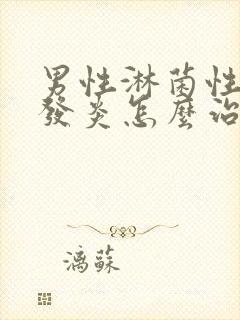 男性淋菌性
發炎怎麼治
漓蘇